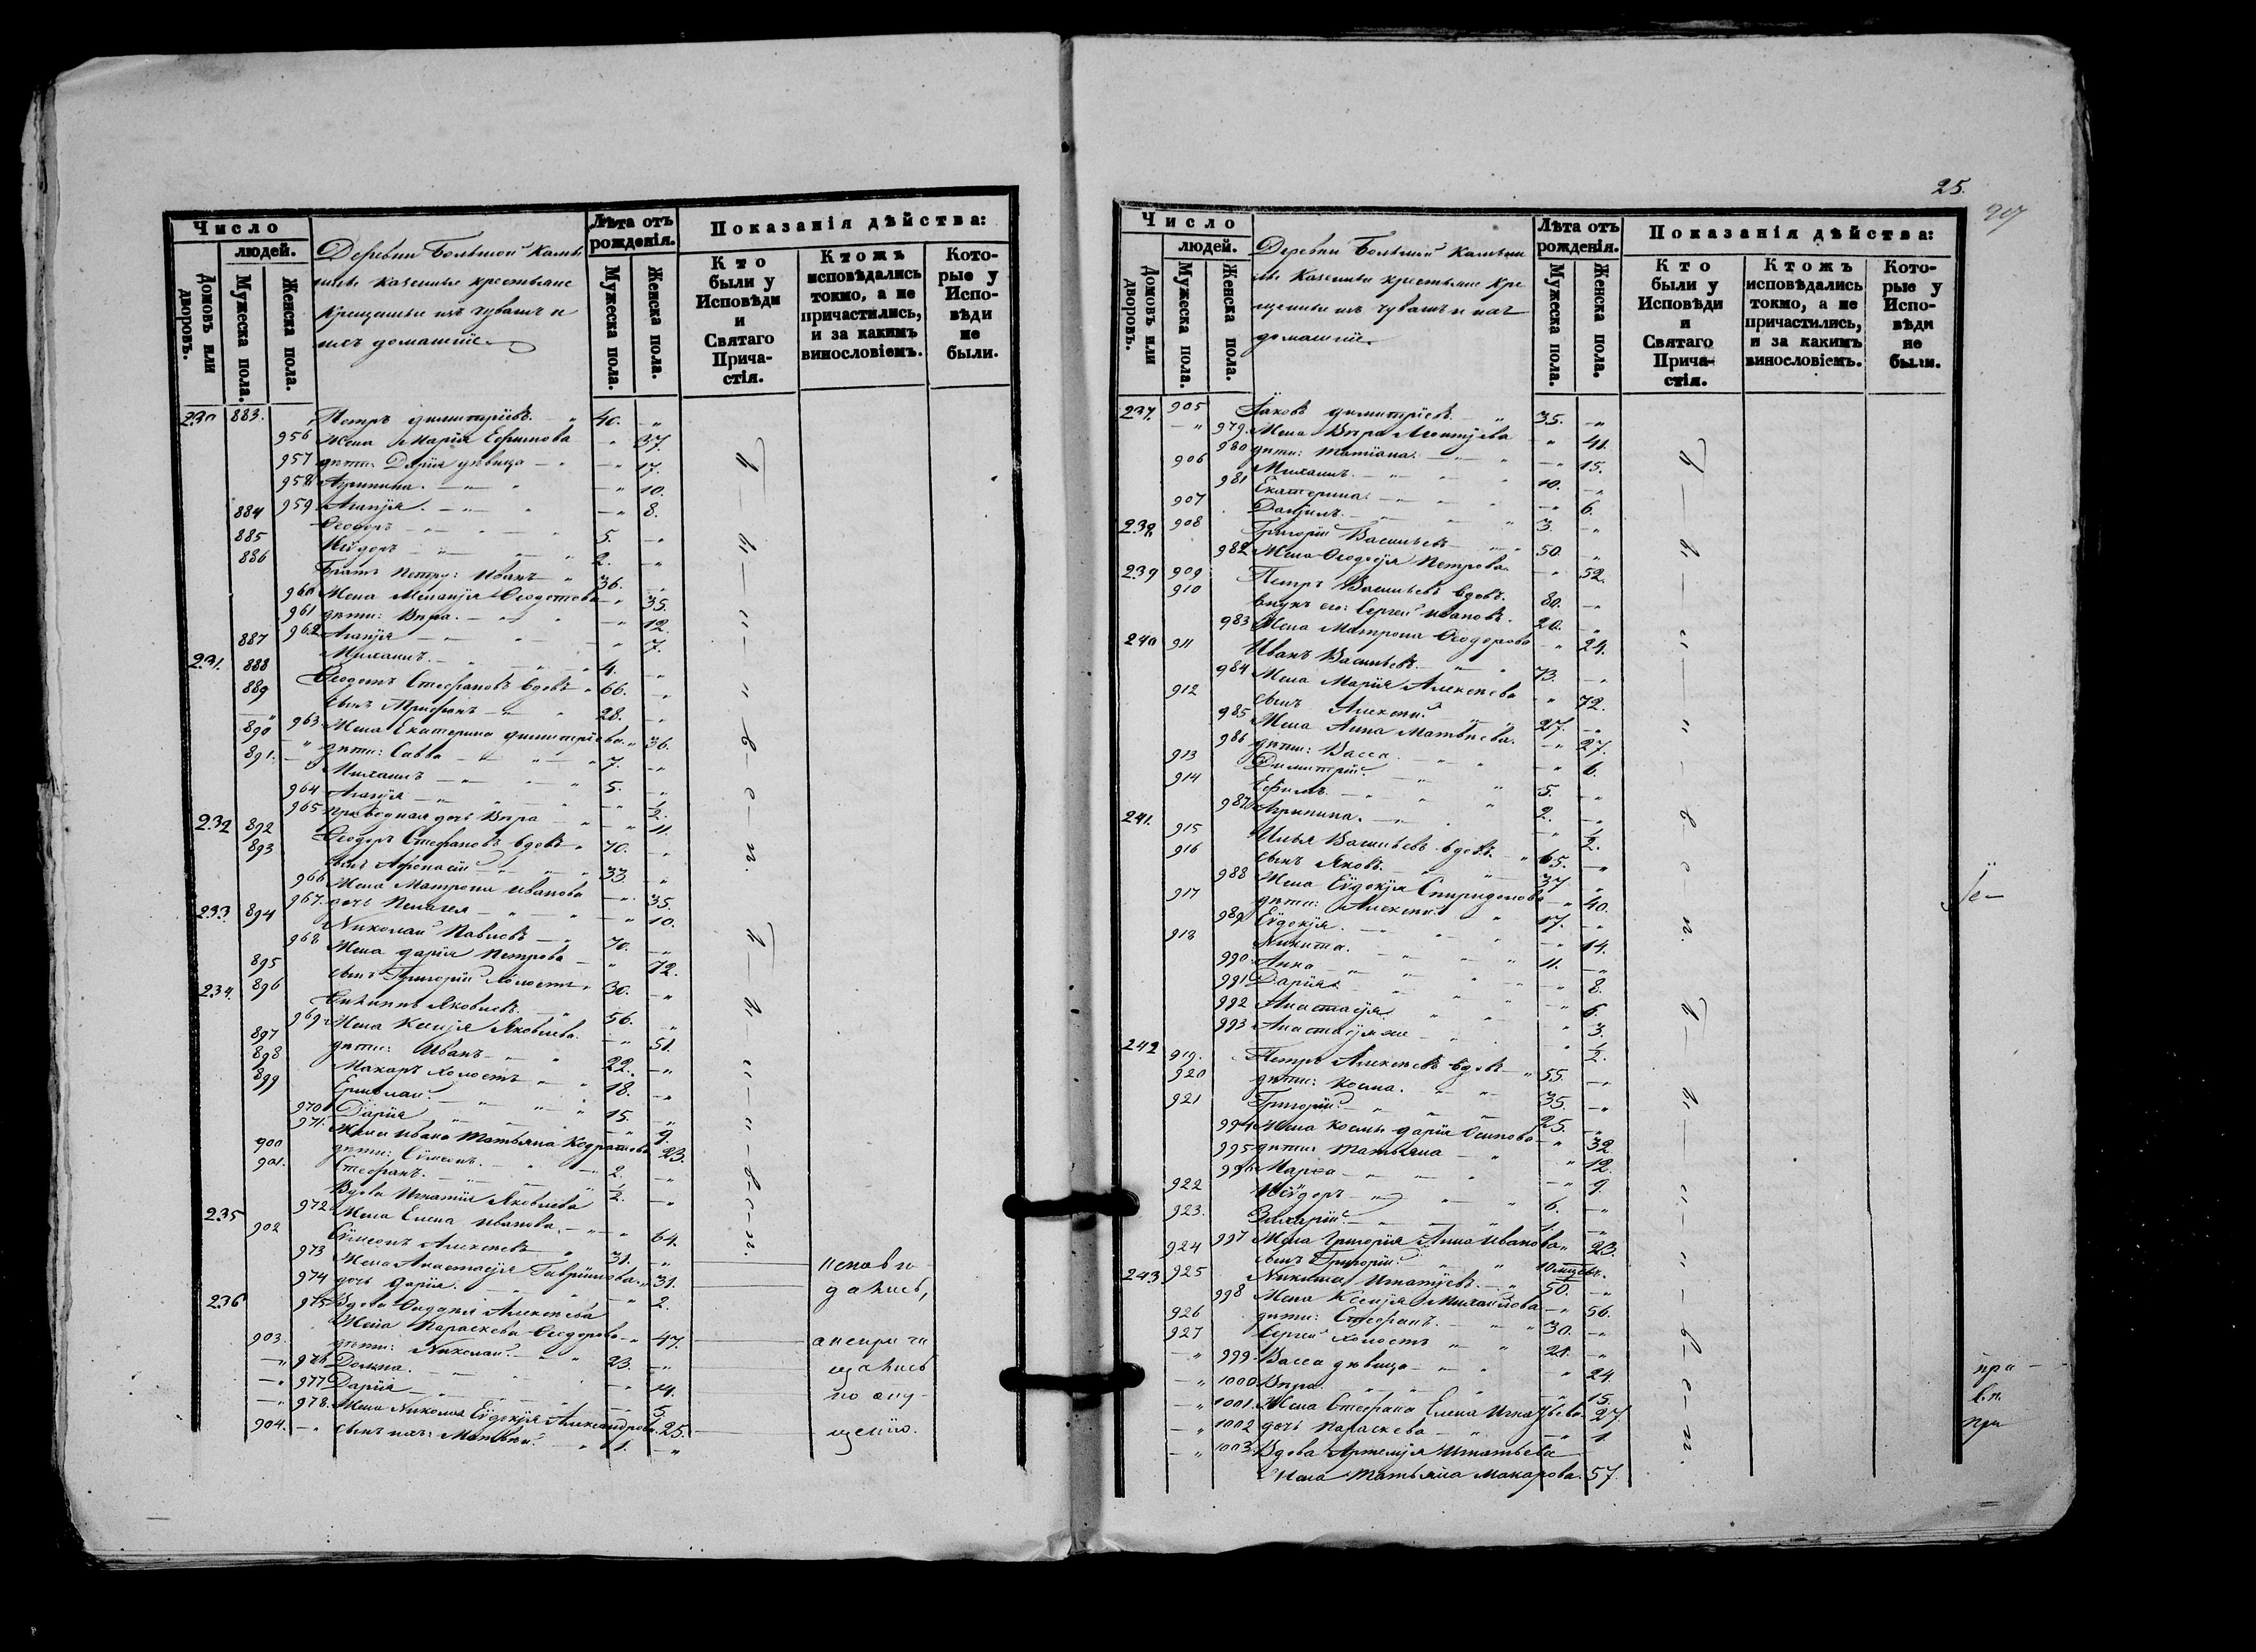 Число
людей.
Домовъ или дворовъ.
Мужеска пола.
Женска пола.
Деревни Большой Камы
казенные крестьяне
крещеные изъ чувашъ и
ихъ домашніе
Лѣта отъ рожденія.
Мужеска пола.
Женска пола.
Показанія дѣйства:
Кто были у Исповѣди и Святаго Причастія.
Ктожъ исповѣдались токмо, а не причастились, и за какимъ винословіемъ.
Которые у Исповѣди не были.
230 883. Петръ Димитріевъ 40.
956 Жена Марія Ефимова 37.
957 дѣти: Дарія дѣвица 17.
958 Агрипина. 10.
959 Агапія. 8.
884 Ѳеодоръ 5.
885 Исидоръ 2.
886 Братъ Петру: Иванъ 36.
960 Жена Меланія Ѳедотова 35.
961 дѣти: Вѣра. 12.
962 Агапія 7.
887 Михаилъ. 4.
231. 888 Ѳеодотъ Стефановъ вдовъ 66.
889 сынъ Трифонъ 28.
963. Жена Екатерина Димитріева. 36.
890 дѣти: Савва 7.
891. Михаилъ 5.
964 Агапія ½.
965 Приводная дочь Вѣра 11.
232 892 Ѳеодоръ Стефановъ вдовъ 70.
893 сынъ Афонасій 33.
966 Жена Матрона Иванова 35.
967. дочь Пелагея 10.
233. 894 Николай Павловъ 70.
968 Жена Дарія Петрова 72.
895 сынъ Григорій холостъ 30.
234. 896 Филиппъ Яковлевъ. 56.
969 Жена Ксенія Яковлева. 51.
897 дѣти: Иванъ 22.
898 Макаръ холостъ 18.
899 Ермолай. 15.
970 Дарія 9.
971. Жена Ивана Татьяна Кодратова 23.
900 дѣти: Симеонъ. 2.
901. Стефанъ. ½.
Вдова Игнатія Яковлева
972 Жена Елена Иванова. 64.
235 902 Симеонъ Алексѣевъ 31.
973 Жена Анастасія Гавріилова 31.
974 дочь Дарія. 2.
236 975 Вдова Алексѣева
Жена Параскева Ѳеодорова 47.
903. дѣти: Николай. 23.
976 Домна. 14.
977 Дарія 5.
978. Жена Николая Евдокія Александрова. 25.
904. сынъ ихъ: Матвѣй. 1.
исповѣ-
дались,
а неприча
щались
по опу-
щенію.
25.
Число
людей.
Домовъ или дворовъ.
Мужеска пола.
Женска пола.
Деревни Большой Камы
казенные крестьяне кре
щеные изъ чувашъ и ихъ
домашніе
Лѣта отъ рожденія.
Мужеска пола.
Женска пола.
Показанія дѣйства:
Кто были у Исповѣди и Святаго Причастія.
Ктожъ исповѣдались токмо, а не причастились, и за какимъ винословіемъ.
Которые у Исповѣди не были.
237. 905 Іаковъ Димитріевъ. 35.
979. Жена Вѣра Леонтіева 41.
980 дѣти: Татіана. 15.
906 Михаилъ. 10.
981 Екатерина. 6.
907 Даніилъ. 3.
238 908 Григорій Васильевъ 50.
982 Жена Ѳеодосія Петрова. 52.
239 909 Петръ Васильевъ вдовъ. 80.
910 внукъ его: Сергей Ивановъ. 20.
983 Жена Матрона Ѳеодорова 24.
240 911 Иванъ Васильевъ. 73.
984 Жена Марія Алексѣева 72.
912 сынъ Алексѣй. 27.
985 Жена Анна Матвѣева. 27.
986 дѣти: Васса. 6.
913 Димитрій. 5.
914 Ефимъ. 2.
987 Агрипина. ½.
241. 915 Илья Васильевъ вдовъ. 65.
916 сынъ Яковъ. 37
988 Жена Евдокія Спиридонова 40.
917 дѣти: Алексѣй 17.
989 Евдокія. 14.
918 Никита. 11.
990. Анна 8.
991 Дарія. 6.
992 Анастасія. 3.
993 Анастасія же ½.
242 919. Петръ Алексѣевъ вдовъ 55.
920 дѣти: Косма. 35.
921 Григорій. 25.
994 Жена Космы Дарія Осипова 32
995 дѣти: Татьяна 12.
996 Марѳа 9.
922 Исидоръ 6.
923. Захарій. 1.
997 Жена Григорія Анна Иванова 23.
924 сынъ Григорій. 10 мцевъ.
243 925 Никита Игнатіевъ. 50.
998 Жена Ксенія Михайлова 56.
926 дѣти: Стефанъ. 30.
927 Сергей холостъ 21.
999 Васса дѣвица 24.
1000 Вѣра. 15.
1001. Жена Стефана Елена Игнатьева. 27.
1002 дочь Параскева 1.
1003 Вдова Артемія Игнатьева
Жена Татьяна Макарова. 57.